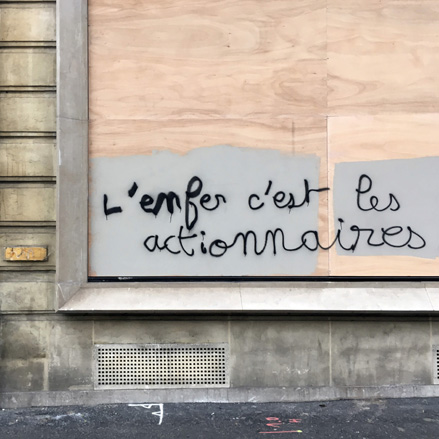 L'enfer c'est les
actionnaires